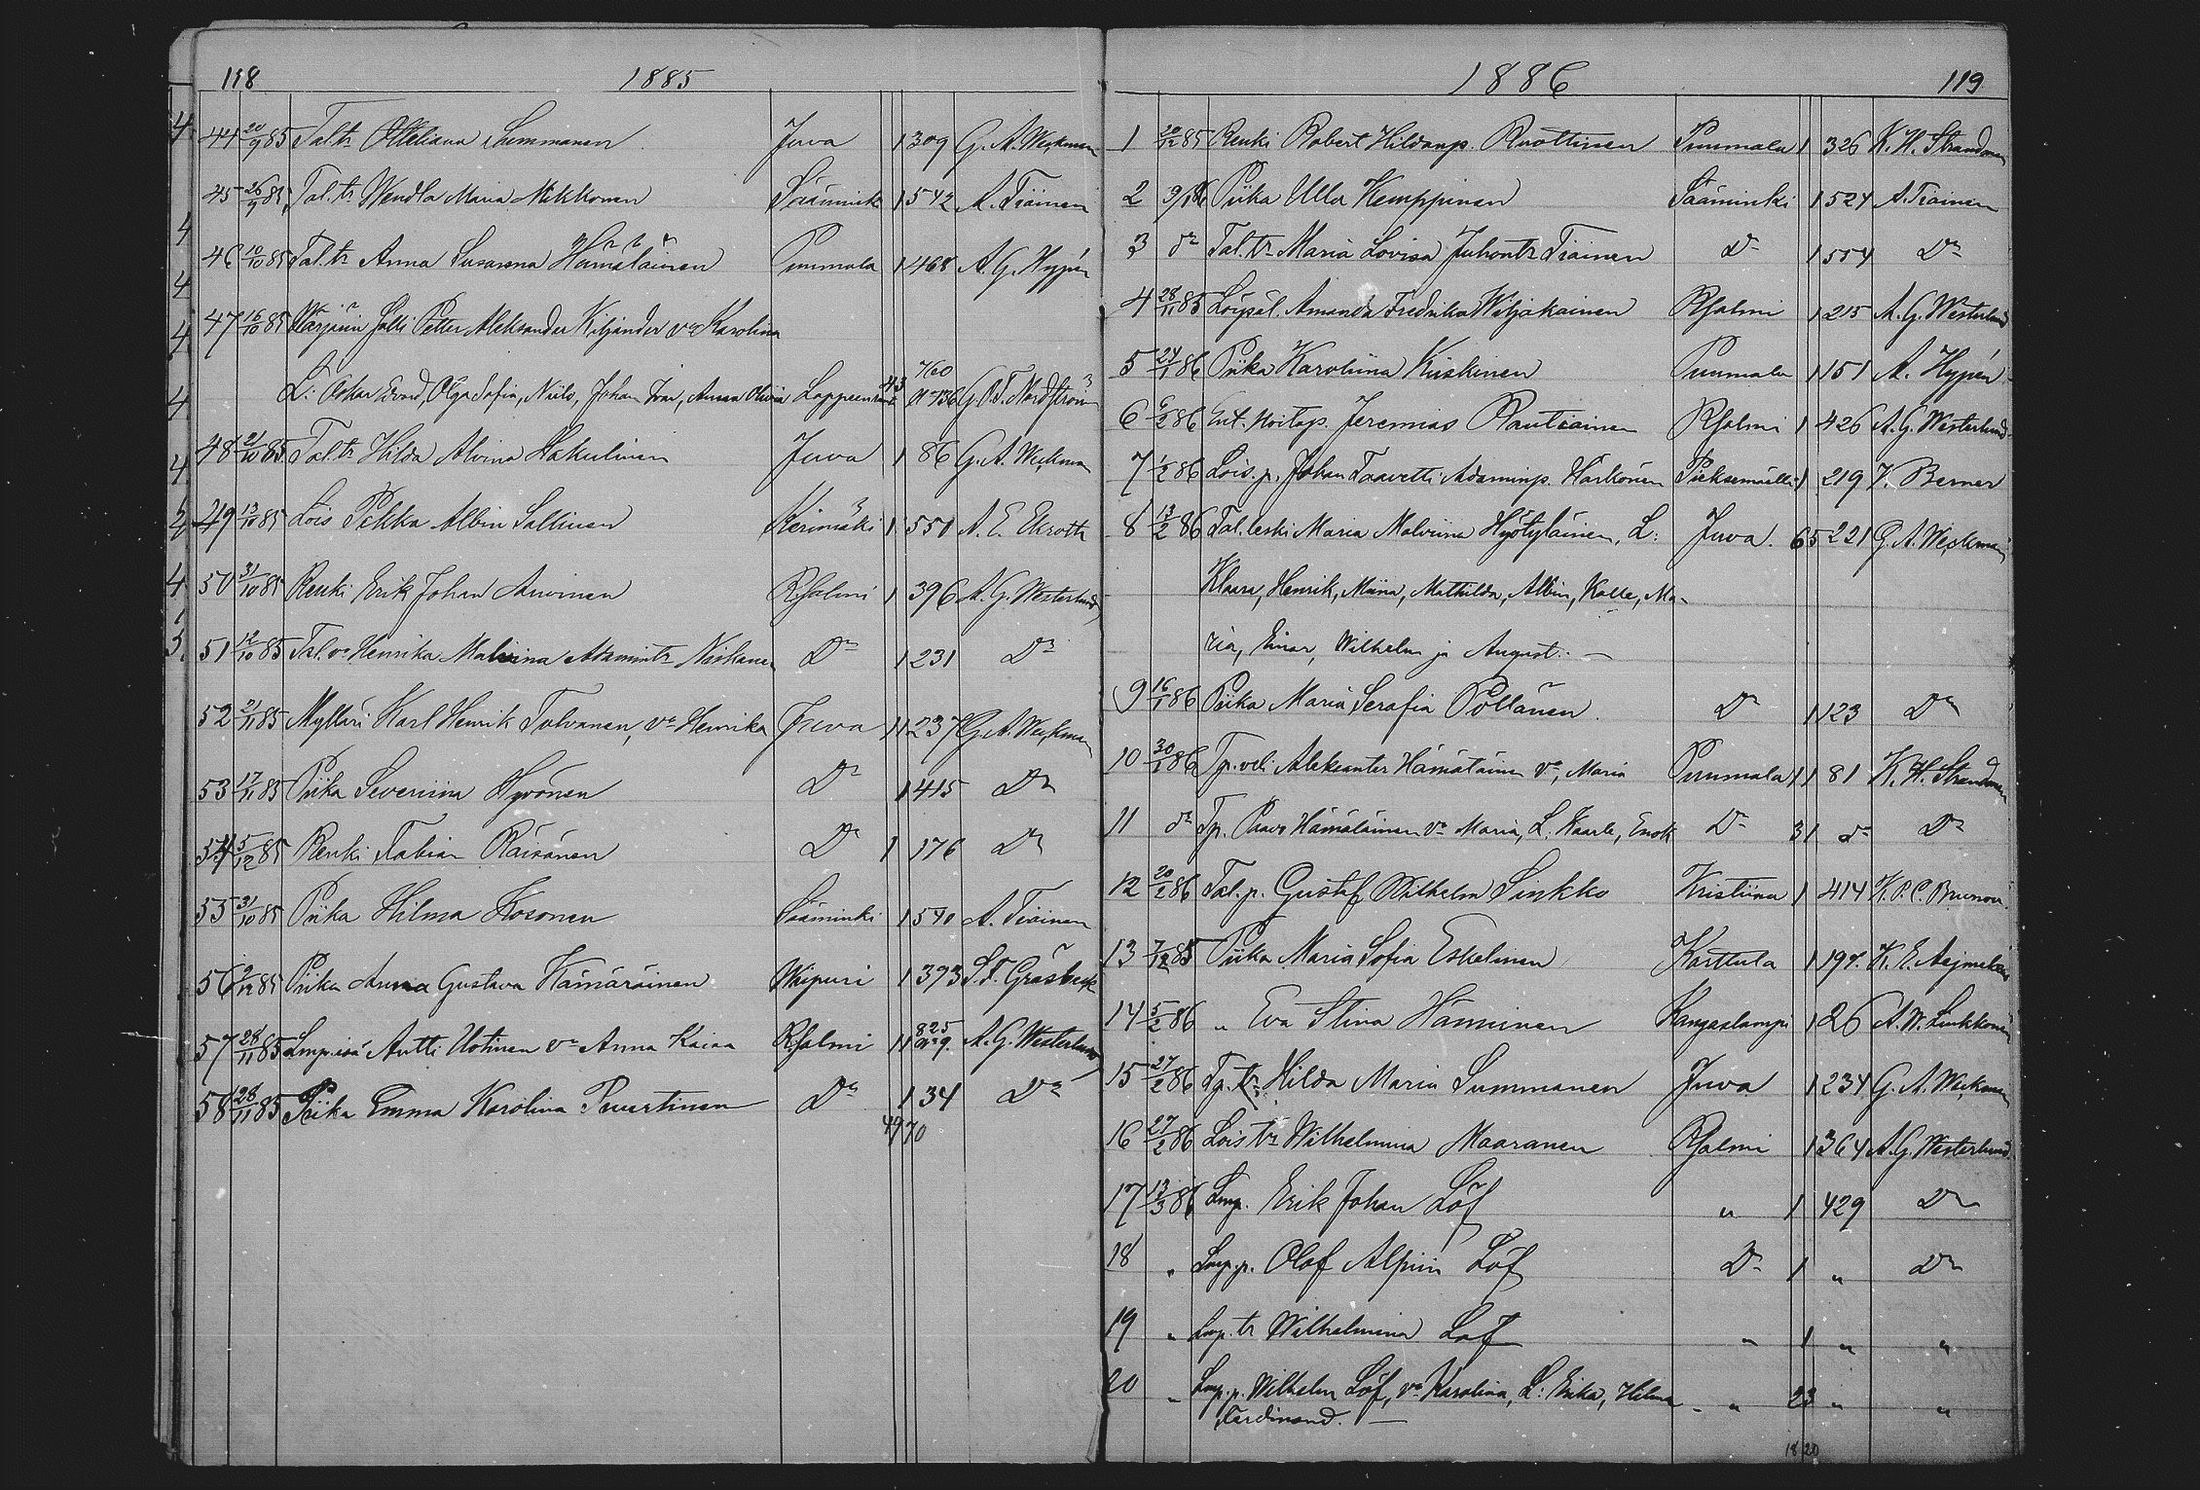 118 1885
44 20/9 85 Tal.tr Otteliana Summanen Juva 1 309 G. A. Weckman
45 26/9 85 Tal. tr Wendla Maria Mikkonen Sääminki 1 542 A. Tiäinen
46 10/10 85 Tal. tr Anna Susanna Hämäläinen Puumala 1 468 A. G. Hypén
47 16/10 85 Petter Aleksander Kiljander va Karolina
L: Oskar Evord, Olga Sofia, Niilo, Johan Ivar, Anna Olivia Lappeenran 43 760 G. O. F. Nordström
48 21/10 85 Tal. tr Hilda Alvina Hakulinen Juva 1 86 G. A. Weckman
49 13/10 85 Lois Pekka Albin Sallinen Kerimäki 1 551 A. E. Ekroth
50 31/10 85 Renki Erik Johan Auvinen RSalmi 1 396 A. G. Westerlund
51 12/10 85 Tal. va Henrika Malvina Adamintr Niskanen Do 1 231 Do
52 21/11 85 Mylläri Karl Henrik Tolvanen, va Henrika Juva 11 237 G. A. Weckman
53 17/11 85 Piika Severiina Hyvönen Do 1 415 Do
54 5/12 85 Renki Fabian Räisänen Do 1 176 Do
55 31/10 85 Piika Hilma Kosonen Sääminki 1 540 A. Tiäinen
56 9/12 85 Piika Anna Gustava Hämäräinen Wiipuri 1 393 Gråsbeck
57 28/11 85 Antti Uotinen va Anna Kaisa RSalmi 11 825 A. G. Westerlund
58 28/11 85 Piika Emma Karolina Puustinen Do 1 34 Do
49 70
1886 119
1 20/12 85 Renki Robert Hildanp. Ruottinen Puumala 1 326 K. H. Strandman
2 9/1 86 Piika Ulla Kemppinen Sääminki 1 524 A. Tiäinen
3 do Tal. tr Maria Lovisa Juhontr Tiainen Do 1 554 Do
4 28/11 85 Amanda Fredrika Wiljakainen RSalmi 1 215 A. G. Westerlund
5 24/1 86 Piika Karoliina Kiiskinen Puumala 1 151 A. Hypén
6 6/2 86 Ent. Hoitop. Jeremias Rautiainen RSalmi 1 426 A. G. Westerlund
7 1/2 86 Lois. p. Johan Taavetti Adaminp. Härkönen Pieksemäellä 1 219 J. Berner
8 13/2 86 Tal. leski Maria Malviina Hyötyläinen, L: Juva. 65 221 G. A. Weckman
Klaara, Henrik, Miina, Mathilda, Albin, Kalle, Ma-
ria, Einar, Wilhelm ja August. —
9 16/1 86 Piika Maria Serafia Pöllänen. Do 1 123 Do
10 30/1 86 Tp. veli Aleksanter Hämäläinen va, Maria Puumala 11 81 K. H. Strandman
11 do Tp. Paavo Hämäläinen va Maria, L. Kaarle, Enok Do 31 do Do
12 20/1 86 Tal. p. Gustaf Wilhelm Sinkko Kristiina 1 414
13 7/12 85 Piika Maria Sofia Eskelinen Karttula 1 197. K. E. Aejmelæus
14 5/2 86 „ Eva Stina Hänninen Kangaslampi 1 26 A. W. Linkkonen
15 27/2 86 Tp. tr. Hilda Maria Summanen Juva 1 234 G. A. Weckman
16 27/2 86 Lois tr Wilhelmina Maaranen RSalmi 1 364 A. G. Westerlund
17 13/3 86 Lmp. Erik Johan Löf „ 1 429 Do
18 „ Lmp. p. Olof Alpiin Löf Do 1 „ Do
19 „ Lmp. tr Wilhelmina Löf „ 1 „ „
20 „ Lmp. p. Wilhelm Löf, va Karolina, L: Erika, Hilma „ 23 „ „
Ferdinand. —
18 20